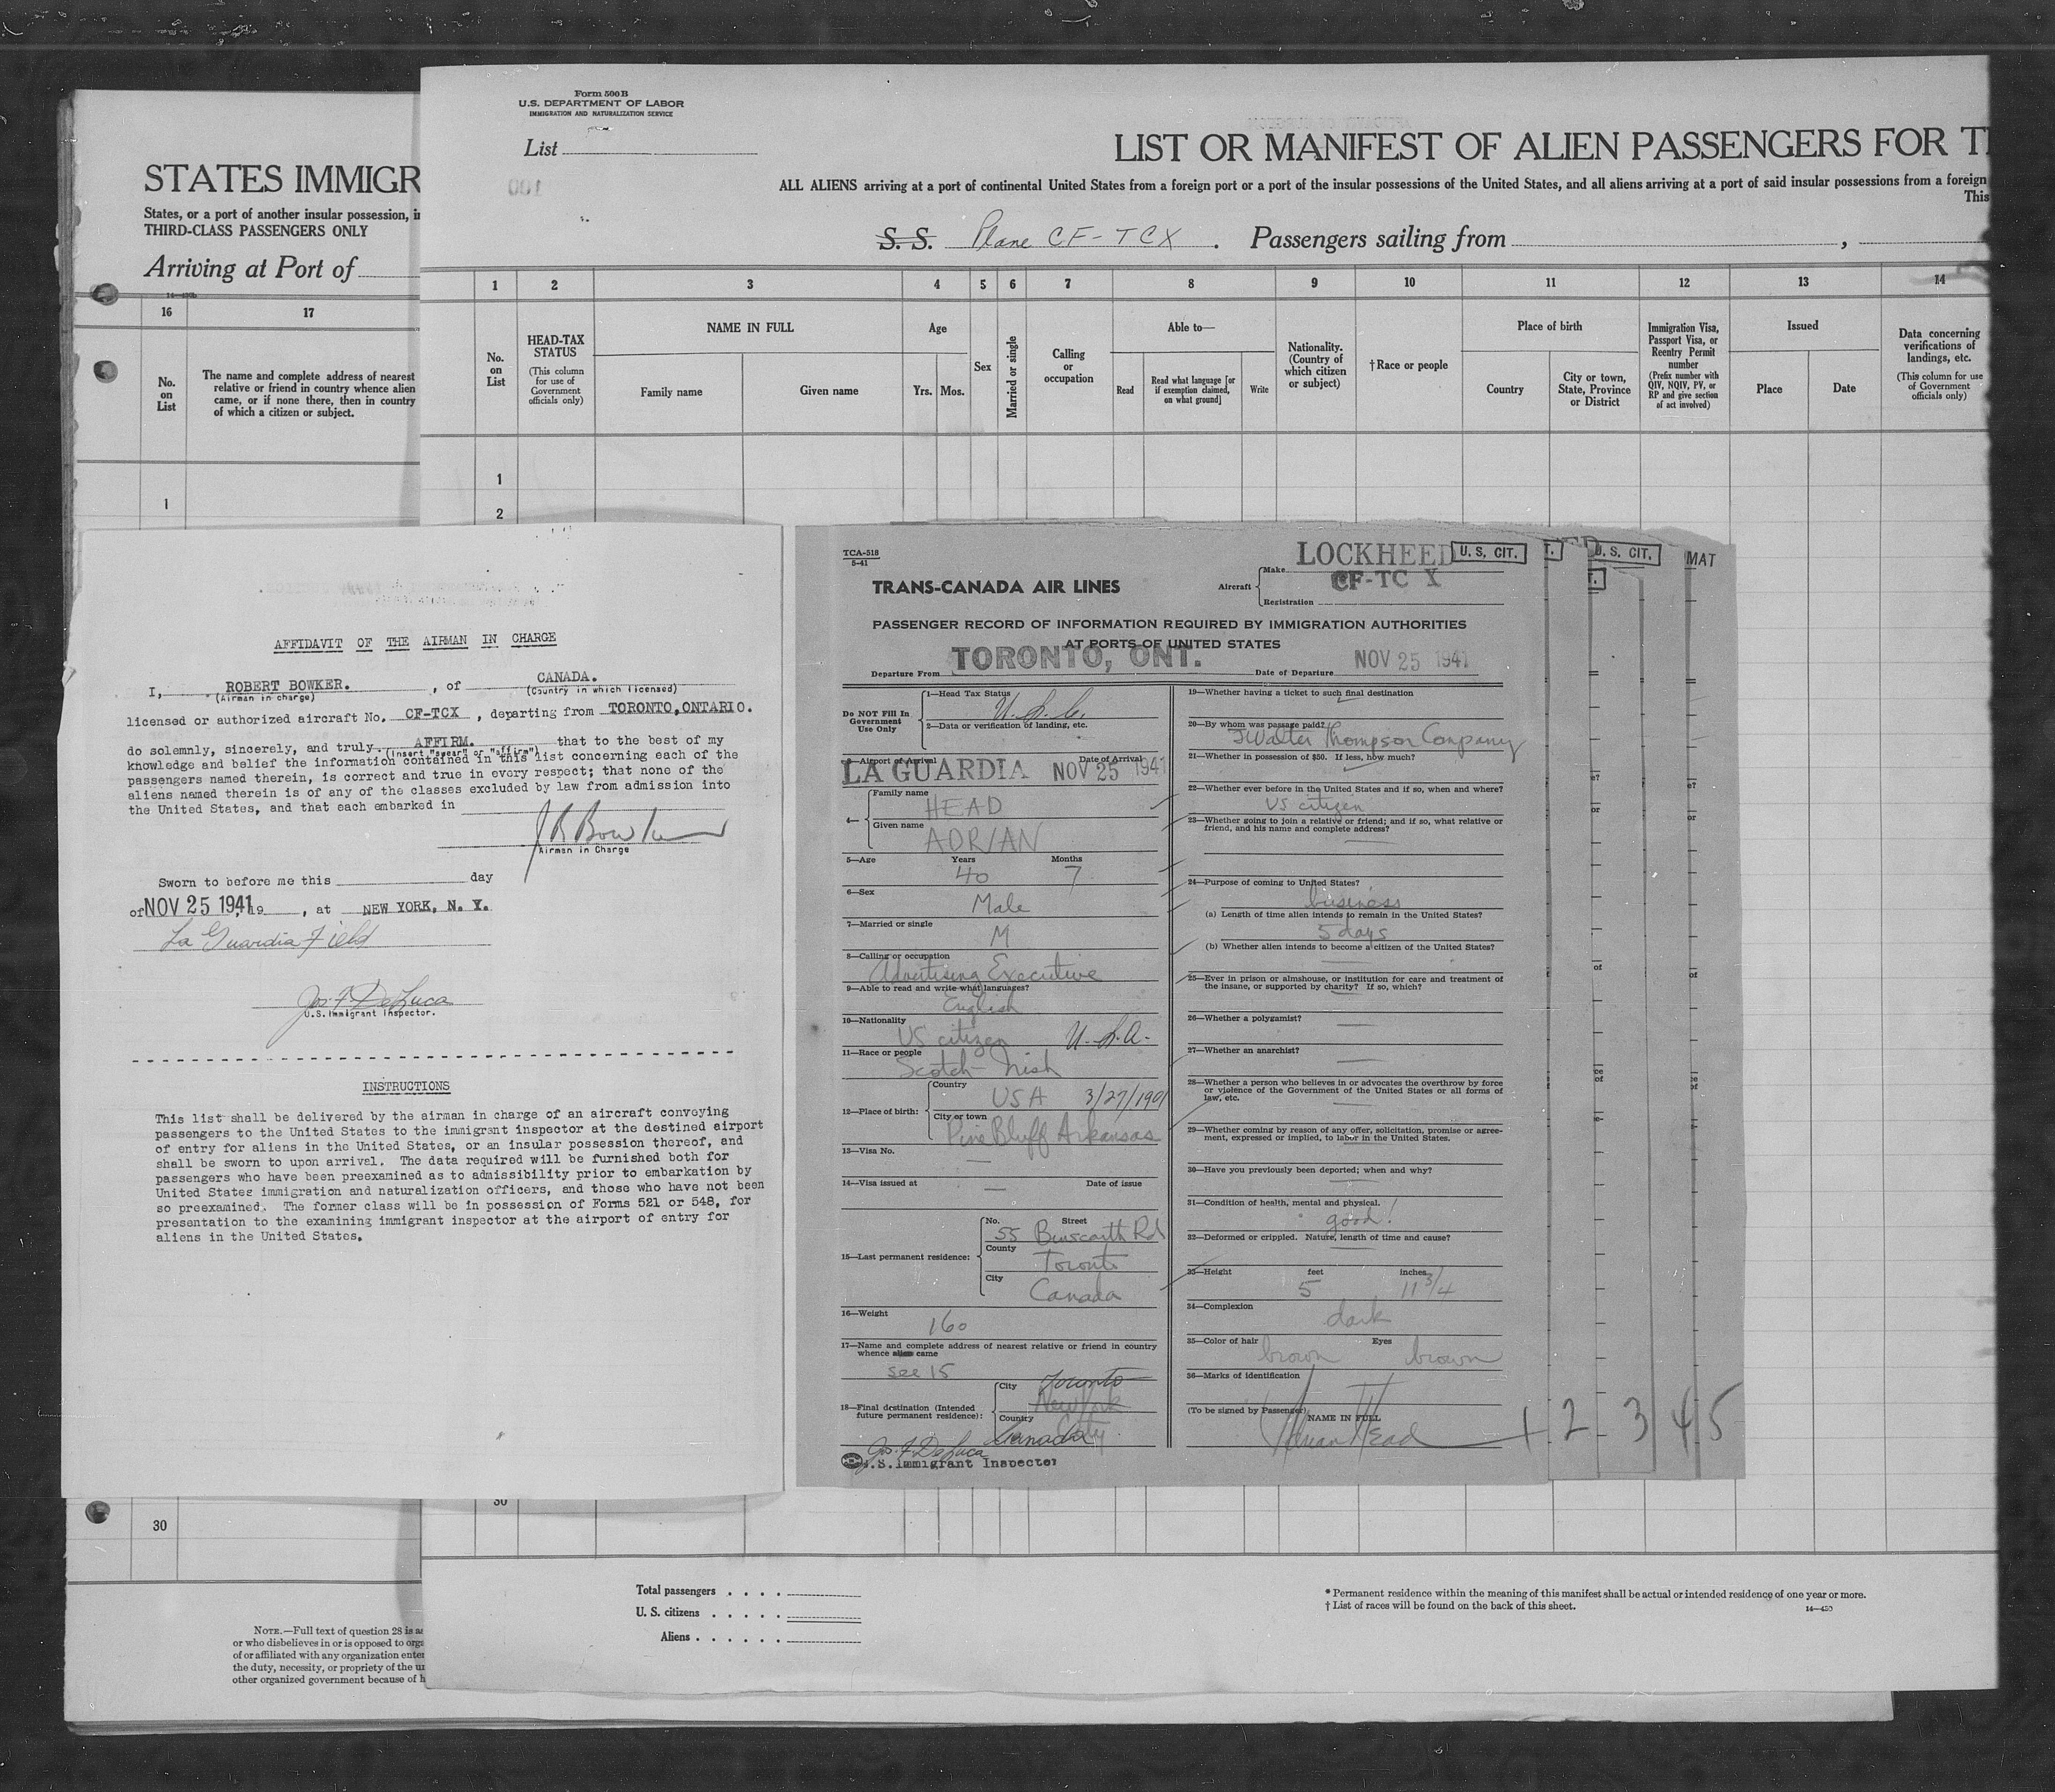 STATES IMMIGR
States, or a port of another insular possession, i
THIRD-CLASS PASSENGERS ONLY
Arriving at Port of
16
17
No. on List
The name and complete address of nearest
relative or friend in country whence alien
came, or if none there, then in country
of which a citizen or subject.
1
30
NOTE.—Full text of question 28 is as
or who disbelieves in or is opposed to orga
of or affiliated with any organization enter
the duty, necessity, or propriety of the un
other organized government because of h
Form 500 B
U.S. DEPARTMENT OF LABOR
IMMIGRATION AND NATURALIZATION SERVICE
List
LIST OR MANIFEST OF ALIEN PASSENGERS FOR T
ALL ALIENS arriving at a port of continental United States from a foreign port or a port of the insular possessions of the United States, and all aliens arriving at a port of said insular possessions from a foreign
This
S. S. Plane CF-TCX . Passengers sailing from ,
1 2 3 4 5 6 7 8 9 10 11 12 13 14
No. on List
HEAD-TAX STATUS
(This column for use of Government officials only)
NAME IN FULL
Family name
Given name
Age
Yrs. Mos.
Sex
Married or single
Calling or occupation
Able to—
Read
Read what language [or if exemption claimed, on what ground]
Write
Nationality. (Country of which citizen or subject)
†Race or people
Place of birth
Country
City or town, State, Province or District
Immigration Visa, Passport Visa, or Reentry Permit number
(Prefix number with QIV, NQIV, PV, or RP and give section of act involved)
Issued
Place
Date
Data concerning verifications of landings, etc.
(This column for use of Government officials only)
1
2
30
AFFIDAVIT OF THE AIRMAN IN CHARGE
I, ROBERT BOWKER. , of CANADA.
(Airman in charge) (Country in which licensed)
licensed or authorized aircraft No. CF-TCX , departing from TORONTO,ONTARIO.
do solemnly, sincerely, and truly AFFIRM. that to the best of my
(Insert "swear" or "affirm")
knowledge and belief the information contained in this list concerning each of the
passengers named therein, is correct and true in every respect; that none of the
aliens named therein is of any of the classes excluded by law from admission into
the United States, and that each embarked in
J R Bowker
Airman in Charge
Sworn to before me this day
of NOV 25 1941, 19 , at NEW YORK, N. Y.
La Guardia Field
Jos. F. DeLuca
U.S. Immigrant Inspector.
INSTRUCTIONS
This list shall be delivered by the airman in charge of an aircraft conveying
passengers to the United States to the immigrant inspector at the destined airport
of entry for aliens in the United States, or an insular possession thereof, and
shall be sworn to upon arrival. The data required will be furnished both for
passengers who have been preexamined as to admissibility prior to embarkation by
United States immigration and naturalization officers, and those who have not been
so preexamined. The former class will be in possession of Forms 521 or 548, for
presentation to the examining immigrant inspector at the airport of entry for
aliens in the United States.
TCA-518
5-41
TRANS-CANADA AIR LINES
Aircraft
Make LOCKHEED
CF-TC X
Registration
U. S. CIT.
U. S. CIT.
MAT
PASSENGER RECORD OF INFORMATION REQUIRED BY IMMIGRATION AUTHORITIES
AT PORTS OF UNITED STATES
Departure From TORONTO, ONT. Date of Departure NOV 25 1941
Do NOT Fill In
Government
Use Only
1—Head Tax Status U.S.C.
2—Data or verification of landing, etc.
3—Airport of Arrival Date of Arrival
LA GUARDIA NOV 25 1941
4—
Family name HEAD
Given name ADRIAN
5—Age Years Months
40 7
6—Sex
Male
7—Married or single
M
8—Calling or occupation
Advertising Executive
9—Able to read and write what languages?
English
10—Nationality
US citizen U.S.A.
11—Race or people
Scotch-Irish
12—Place of birth:
Country
USA 3/27/1901
City or town
Pine Bluff Arkansas
13—Visa No.
14—Visa issued at Date of issue
15—Last permanent residence:
No. Street
55 Binscarth Rd
County
Toronto
City
Canada
16—Weight
160
17—Name and complete address of nearest relative or friend in country
whence alien came
see 15
18—Final destination (Intended
future permanent residence):
City Toronto
New York
Country City
Canada
Jos. F. DeLuca
U.S. Immigrant Inspector
19—Whether having a ticket to such final destination
20—By whom was passage paid?
J Walter Thompson Company
21—Whether in possession of $50. If less, how much?
22—Whether ever before in the United States and if so, when and where?
US citizen
23—Whether going to join a relative or friend; and if so, what relative or
friend, and his name and complete address?
24—Purpose of coming to United States?
business
(a) Length of time alien intends to remain in the United States?
5 days
(b) Whether alien intends to become a citizen of the United States?
25—Ever in prison or almshouse, or institution for care and treatment of
the insane, or supported by charity? If so, which?
26—Whether a polygamist?
27—Whether an anarchist?
28—Whether a person who believes in or advocates the overthrow by force
or violence of the Government of the United States or all forms of
law, etc.
29—Whether coming by reason of any offer, solicitation, promise or agree-
ment, expressed or implied, to labor in the United States.
30—Have you previously been deported; when and why?
31—Condition of health, mental and physical.
good!
32—Deformed or crippled. Nature, length of time and cause?
33—Height feet inches
5 11 3/4
34—Complexion
dark
35—Color of hair Eyes
brown brown
36—Marks of identification
(To be signed by Passenger) NAME IN FULL
Adrian Head
1 2 3 4 5
Total passengers . . . .
U. S. citizens . . . . .
Aliens . . . . . .
* Permanent residence within the meaning of this manifest shall be actual or intended residence of one year or more.
† List of races will be found on the back of this sheet.
14—430